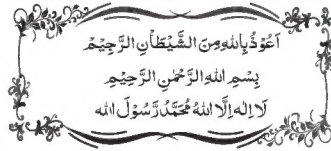 اَعُوْذُ بِاللهِ مِنَ الشَّيْطَانِ الرَّجِيْمْ
بِسْمِ اللهِ الرَّحْمٰنِ الرَّحِيْمِ
لَا اِلٰهَ اِلَّا اللهُ مُحَمَّدُ رَّسُوْلَ الله